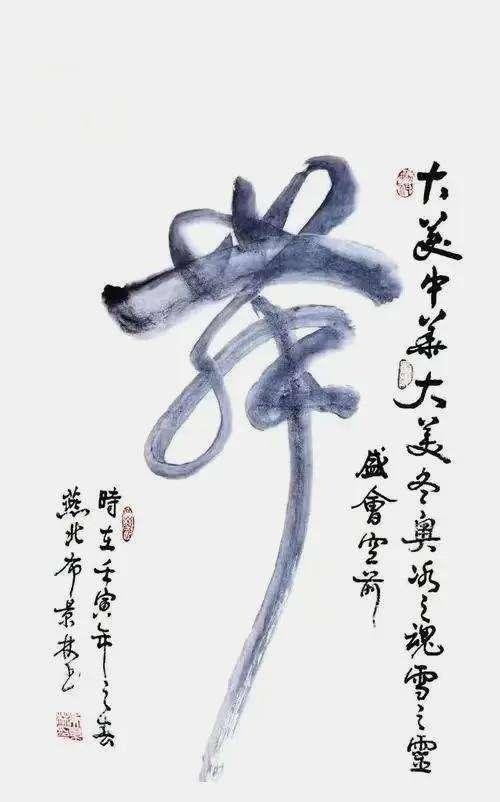 大美中華大美冬奧冰之魂雪之靈
盛會空前
舞
時在壬寅年之春
燕北布景林书